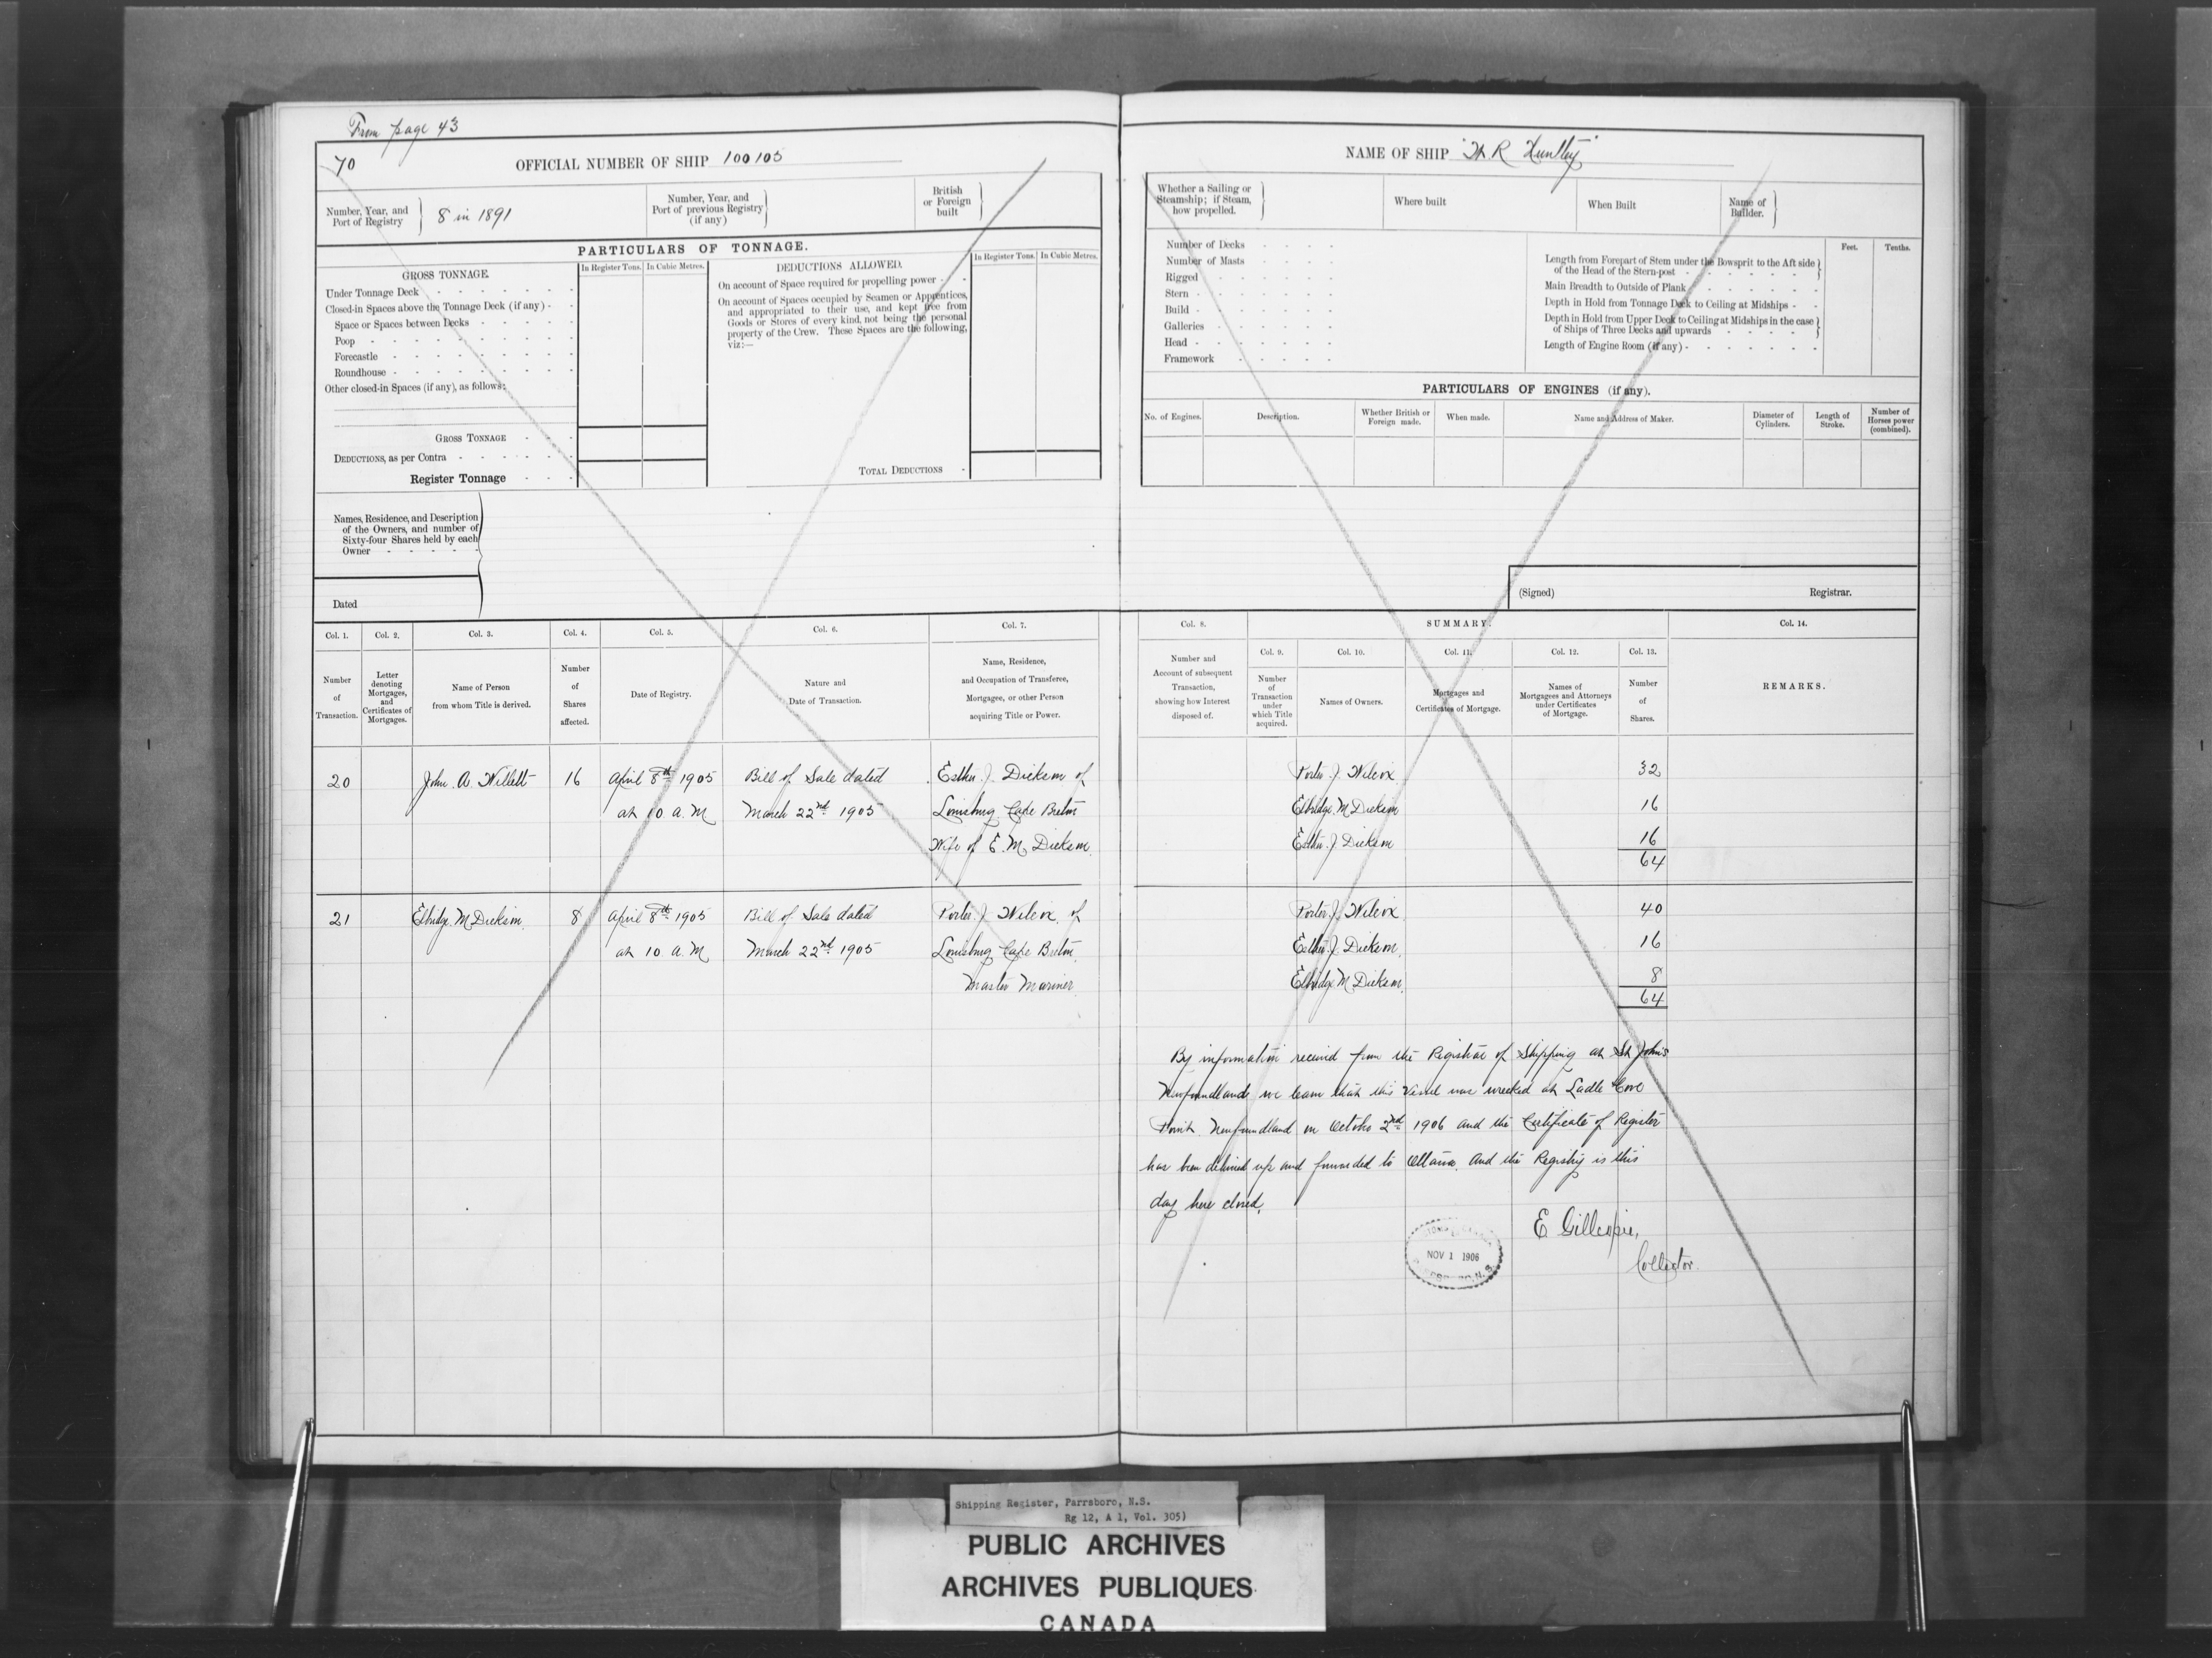 From page 43
70
OFFICIAL NUMBER OF SHIP 100105
Number, Year, and Port of Registry } 8 in 1891
Number, Year, and Port of previous Registry (if any) }
British or Foreign built }
PARTICULARS OF TONNAGE.
GROSS TONNAGE.
In Register Tons. In Cubic Metres.
Under Tonnage Deck
Closed-in Spaces above the Tonnage Deck (if any)
Space or Spaces between Decks
Poop
Forecastle
Roundhouse
Other closed-in Spaces (if any), as follows:
GROSS TONNAGE
DEDUCTIONS, as per Contra
Register Tonnage
DEDUCTIONS ALLOWED.
In Register Tons. In Cubic Metres.
On account of Space required for propelling power
On account of Spaces occupied by Seamen or Apprentices,
and appropriated to their use, and kept free from
Goods or Stores of every kind, not being the personal
property of the Crew. These Spaces are the following,
viz:—
TOTAL DEDUCTIONS
Names, Residence, and Description
of the Owners, and number of
Sixty-four Shares held by each
Owner
Dated
Col. 1. Col. 2. Col. 3. Col. 4. Col. 5. Col. 6. Col. 7.
Number of Transaction.
Letter denoting Mortgages, and Certificates of Mortgages.
Name of Person from whom Title is derived.
Number of Shares affected.
Date of Registry.
Nature and Date of Transaction.
Name, Residence, and Occupation of Transferee, Mortgagee, or other Person acquiring Title or Power.
20 John A. Willett 16 April 8th 1905 Bill of Sale dated Esther J. Dickson of
at 10 a.M March 22nd 1905 Louisburg Cape Breton
Wife of E. M. Dickson
21 Elbridge M Dickson 8 April 8th 1905 Bill of Sale dated Porter J. Wilcox of
at 10 a.M March 22nd 1905 Louisburg Cape Breton
Master Mariner
NAME OF SHIP "H R Huntley"
Whether a Sailing or Steamship; if Steam, how propelled. }
Where built
When Built
Name of Builder. }
Number of Decks
Number of Masts
Rigged
Stern
Build
Galleries
Head
Framework
Feet. Tenths.
Length from Forepart of Stem under the Bowsprit to the Aft side
of the Head of the Stern-post
Main Breadth to Outside of Plank
Depth in Hold from Tonnage Deck to Ceiling at Midships
Depth in Hold from Upper Deck to Ceiling at Midships in the case
of Ships of Three Decks and upwards
Length of Engine Room (if any)
PARTICULARS OF ENGINES (if any).
No. of Engines.
Description.
Whether British or Foreign made.
When made.
Name and Address of Maker.
Diameter of Cylinders.
Length of Stroke.
Number of Horses power (combined).
(Signed) Registrar.
Col. 8. SUMMARY. Col. 14.
Col. 9. Col. 10. Col. 11. Col. 12. Col. 13.
Number and Account of subsequent Transaction, showing how Interest disposed of.
Number of Transaction under which Title acquired.
Names of Owners.
Mortgages and Certificates of Mortgage.
Names of Mortgagees and Attorneys under Certificates of Mortgage.
Number of Shares.
REMARKS.
Porter J. Wilcox 32
Elbridge M Dickson 16
Esther J Dickson 16
64
Porter J. Wilcox 40
Esther J. Dickson 16
Elbridge M Dickson 8
64
By information received from the Registrar of Shipping at St John's
Newfoundland we learn that this Vessel was wrecked at Ladle Cove
Point Newfoundland on October 2nd 1906 and the Certificate of Register
has been delivered up and forwarded to Ottawa. And the Registry is this
day here closed.
E Gillespie,
Collector.
NOV 1 1906
Shipping Register, Parrsboro, N.S.
Rg 12, A 1, Vol. 305)
PUBLIC ARCHIVES
ARCHIVES PUBLIQUES
CANADA